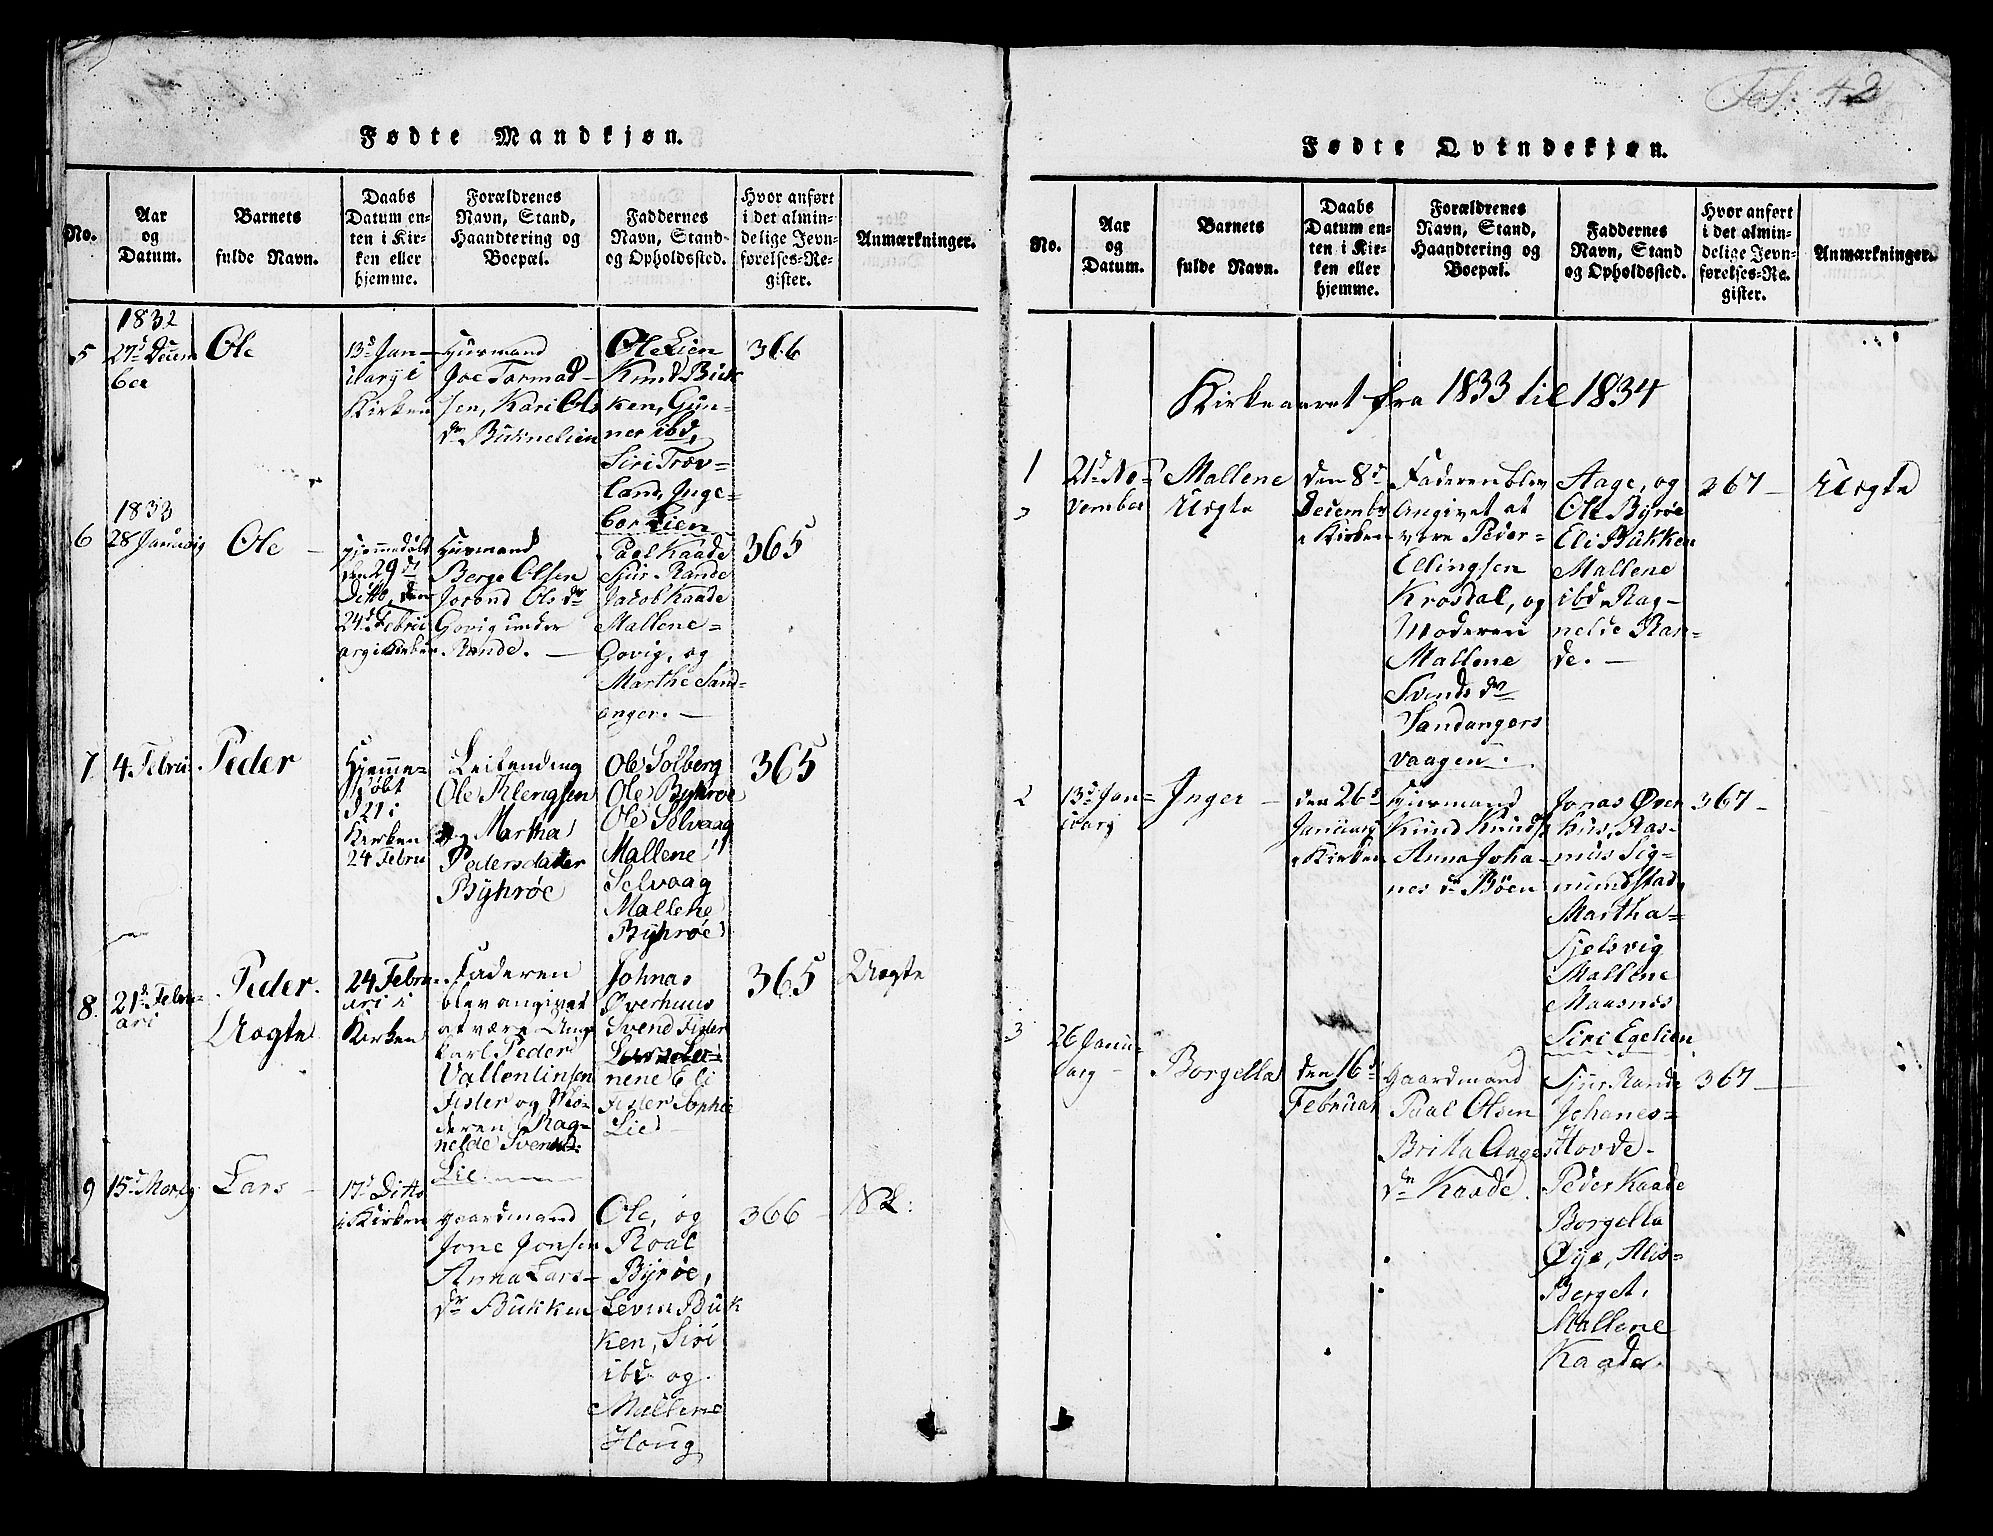 Fol: 42
Fødte Mandkjøn.
No.
Aar
og
Datum.
Barnets
fulde Navn.
Daabs
Datum en-
ten i Kir-
ken eller
hjemme.
Forældrenes
Navn, Stand,
Haandtering og
Boepæl.
Faddernes
Navn, Stand
og Opholdssted.
Hvor anført
i det almin-
delige Jevn-
førelses-Re-
gister.
Anmærkninger.
5
1832
27d Decem
ber
Ole
13d Jan-
uaryi
Kirken
Huusmand
Joe Tormod-
sen, Kari Ols
dr Bukkelien
Ole Lien
Knud Buk
ken, Gun-
ner ibd,
Siri Trov-
land, Inge-
bor Lien
366
6
1833
28 Januarij
Ole
hjemmedøbt
den 29d
Ditto, den
24d Febru
arij Kirken
Huusmand
Berge Olsen
Jorond Ols dr
Govig under
Rande.
Paal Kaade
Siur Rande
Jacob Kaade
Mallene
Govig, og
Marthe Sand-
anger.
365
7
4 Febru
Peder
Hjemme-
døbt
d 21 i
Kirken
24 Febru
Leilending
Ole Klengsen
og Martha
Pedersdatter
Byhrøe
Ole Solberg
Ole Byhrøe
Ole Selvaag
Mallene
Selvaag
Mallene
Byhrøe
365
8.
21d Febru-
ari
Peder.
Uægte
24 Febru
ari i
Kirken
Faderen
blev angivet
at være Ung
karl Peder
Vallentinsen
Fister og Mo-
deren Rag-
nelde Svends:
Lie
Johnas
Øverhuus
Svend Fister
nene Eli
Fister Sophie
Lie
365
Uægte
9
15d Martij
Lars
17d Ditto
i Kirken
gaardmand
Jone Jonsen
Anna Lars-
dr Bukken
Ole, og
Roal
Byrøe,
Levin Buk
ken, Siri
ibd og
Mallene
Houg
366
NB:
Fødte Qvindekjøn.
No.
Aar
og
Datum.
Barnets
fulde Navn.
Daabs
Datum en-
ten i Kir-
ken eller
hjemme.
Forældrenes
Navn, Stand,
Haandtering og
Boepæl.
Faddernes
Navn, Stand
og Opholdssted.
Hvor anført
i det almin-
delige Jevn-
førelses-Re-
gister.
Anmærkninger.
Kirkeaaret fra 1833 til 1834
1
21d No-
vember
Mallene
Uægte
den 8d
Decembr
i Kirken
Faderen blev
Angivet at
være Peder
Ellingsen
Krosdal, og
Moderen
Mallene
Svends dr
Sandangers
vaagen.
Aage, og
Ole Byrøe
Eli Bukken
Mallene
ibd Rag-
nelde Ran-
de.
367
Uægte
2
13d Jan-
uarj
Inger
den 26d
Januarij
i Kirken
Huusmand
Knud Knuds
Anna Joha-
nes dr Bøen
Jonas Øver
huus, Ras-
mus Sig-
mundstad,
Martha
Fjelsvig
Mallene
Maasnes
Siri Egelien
367
3
26 Janu-
arij
Borgella
den 16d
Februar
Gaardmand
Paal Olsen
Britta Aages
dr Kaade
Siur Rande
Johanes
Hovde
Peder Kaade
Borgella
Øye, Alis
Berget,
Mallene
Kaade.
367